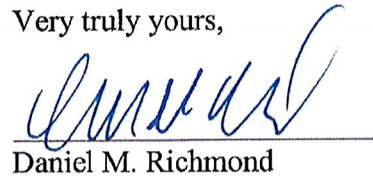 Very truly yours,
Daniel M. Richmond